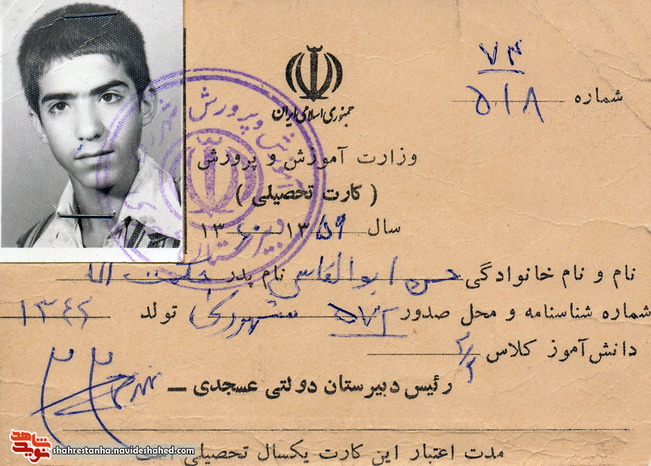 جمهوری اسلامی ایران
۷۳
شماره ۵۱۸
وزارت آموزش و پرورش
( کارت تحصیلی )
سال ۱۳۵۹ - ۱۳۶۰
نام و نام خانوادگی حسن ابوالقاسمی نام پدر حکمت الله
شماره شناسنامه و محل صدور ۵۷۲ تولد ۱۳۴۲
دانش‌آموز کلاس
رئیس دبیرستان دولتی عسجدی
مدت اعتبار این کارت یکسال تحصیلی است
نوید شاهد
shahrestanha.navideshahed.com